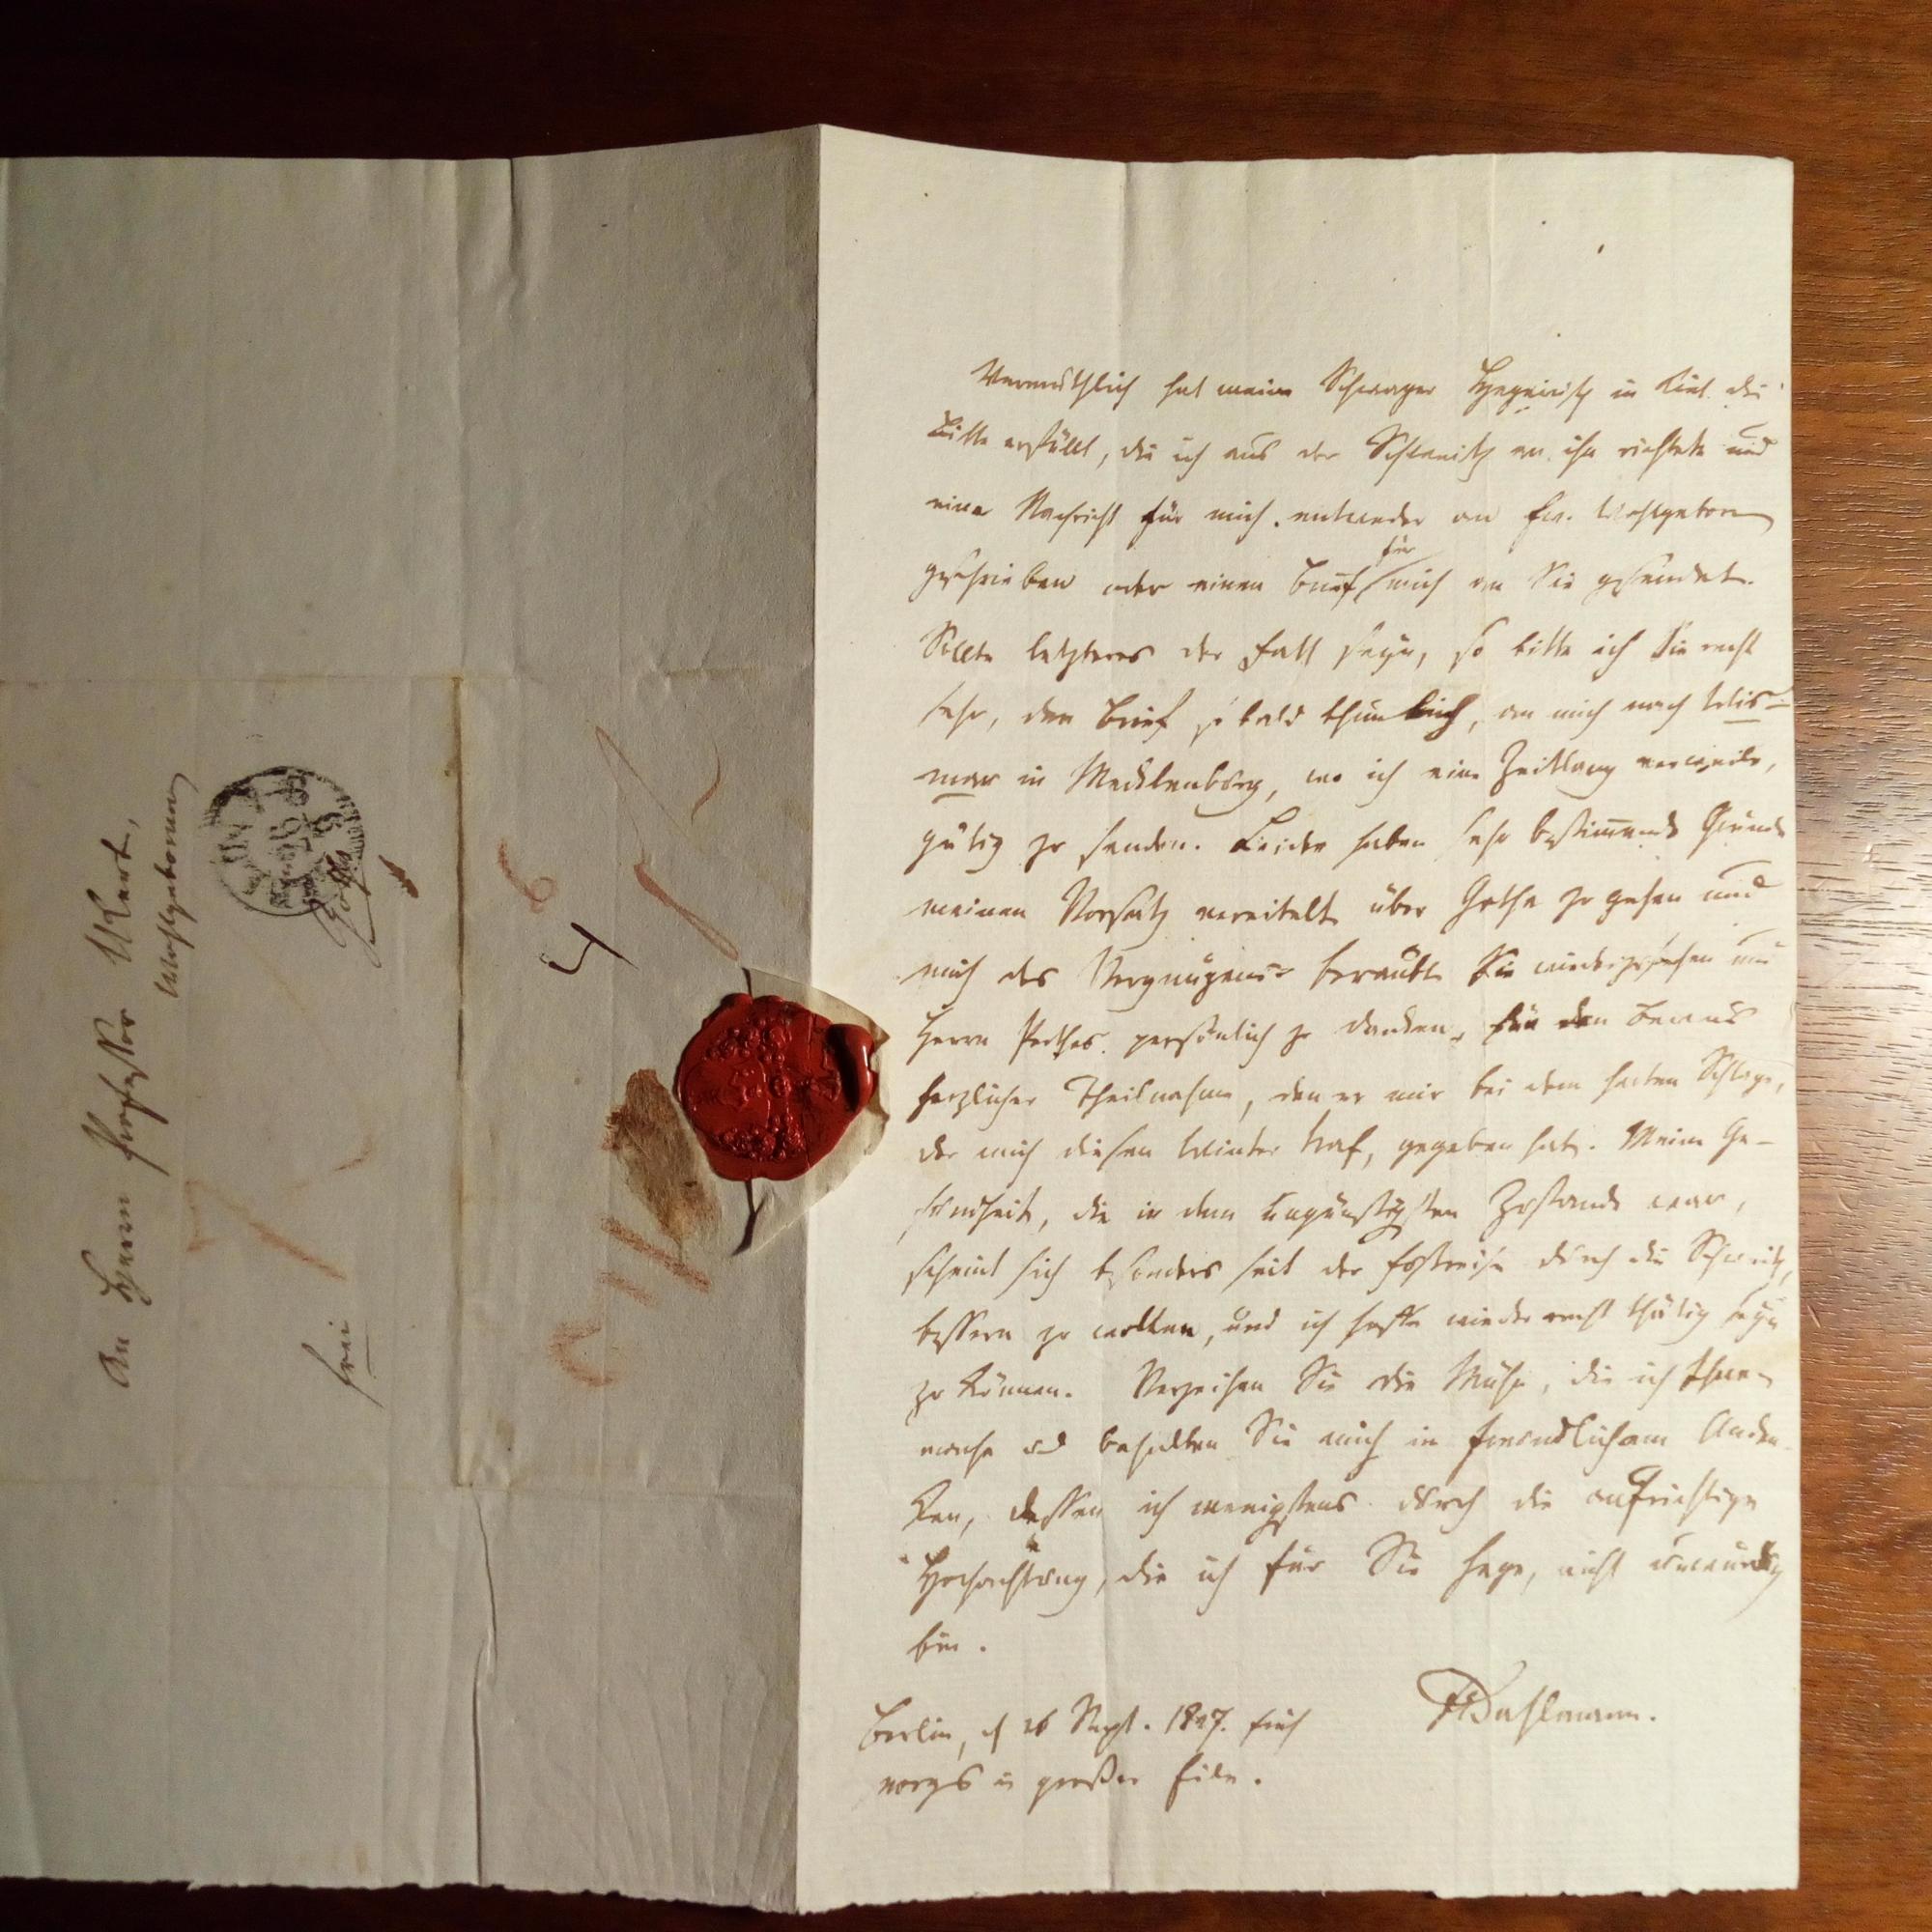 Vermuthlich hat mein Schwager Hegewisch in Kiel die
Bitte erfüllt, die ich aus der Schweitz an ihn richtete und
eine Nachricht für mich entweder an Ew. Wohlgeboren
geschrieben oder einen Brief für mich an Sie gesendet.
Sollte letzteres der Fall seyn, so bitte ich Sie recht
sehr, den Brief so bald thunlich, an mich nach Wis-
mar in Mecklenburg, wo ich eine Zeitlang verweile,
gütig zu senden. Leider haben sehr bestimmende Gründe
meinen Vorsatz vereitelt über Gotha zu gehen und
mich des Vergnügens beraubt Sie wiederzusehen und
Herrn Perthes persönlich zu danken, für den Beweis
herzlicher Theilnahme, den er mir bei dem harten Schlage,
der mich diesen Winter traf, gegeben hat. Meine Ge-
sundheit, die in dem ungünstigsten Zustande war,
scheint sich besonders seit der Fußreise durch die Schweitz,
bessern zu wollen, und ich hoffe wieder recht thätig seyn
zu können. Verzeihen Sie die Mühe, die ich Ihnen
mache und behalten Sie mich in freundlichem Anden-
ken, dessen ich wenigstens durch die aufrichtige
Hochachtung, die ich für Sie hege, nicht unwürdig
bin.
FCDahlmann.
Berlin, d 26 Sept. 1827. früh
morgs in großer Eile.
An Herrn Professor Ukert,
Wohlgeboren
frei
4